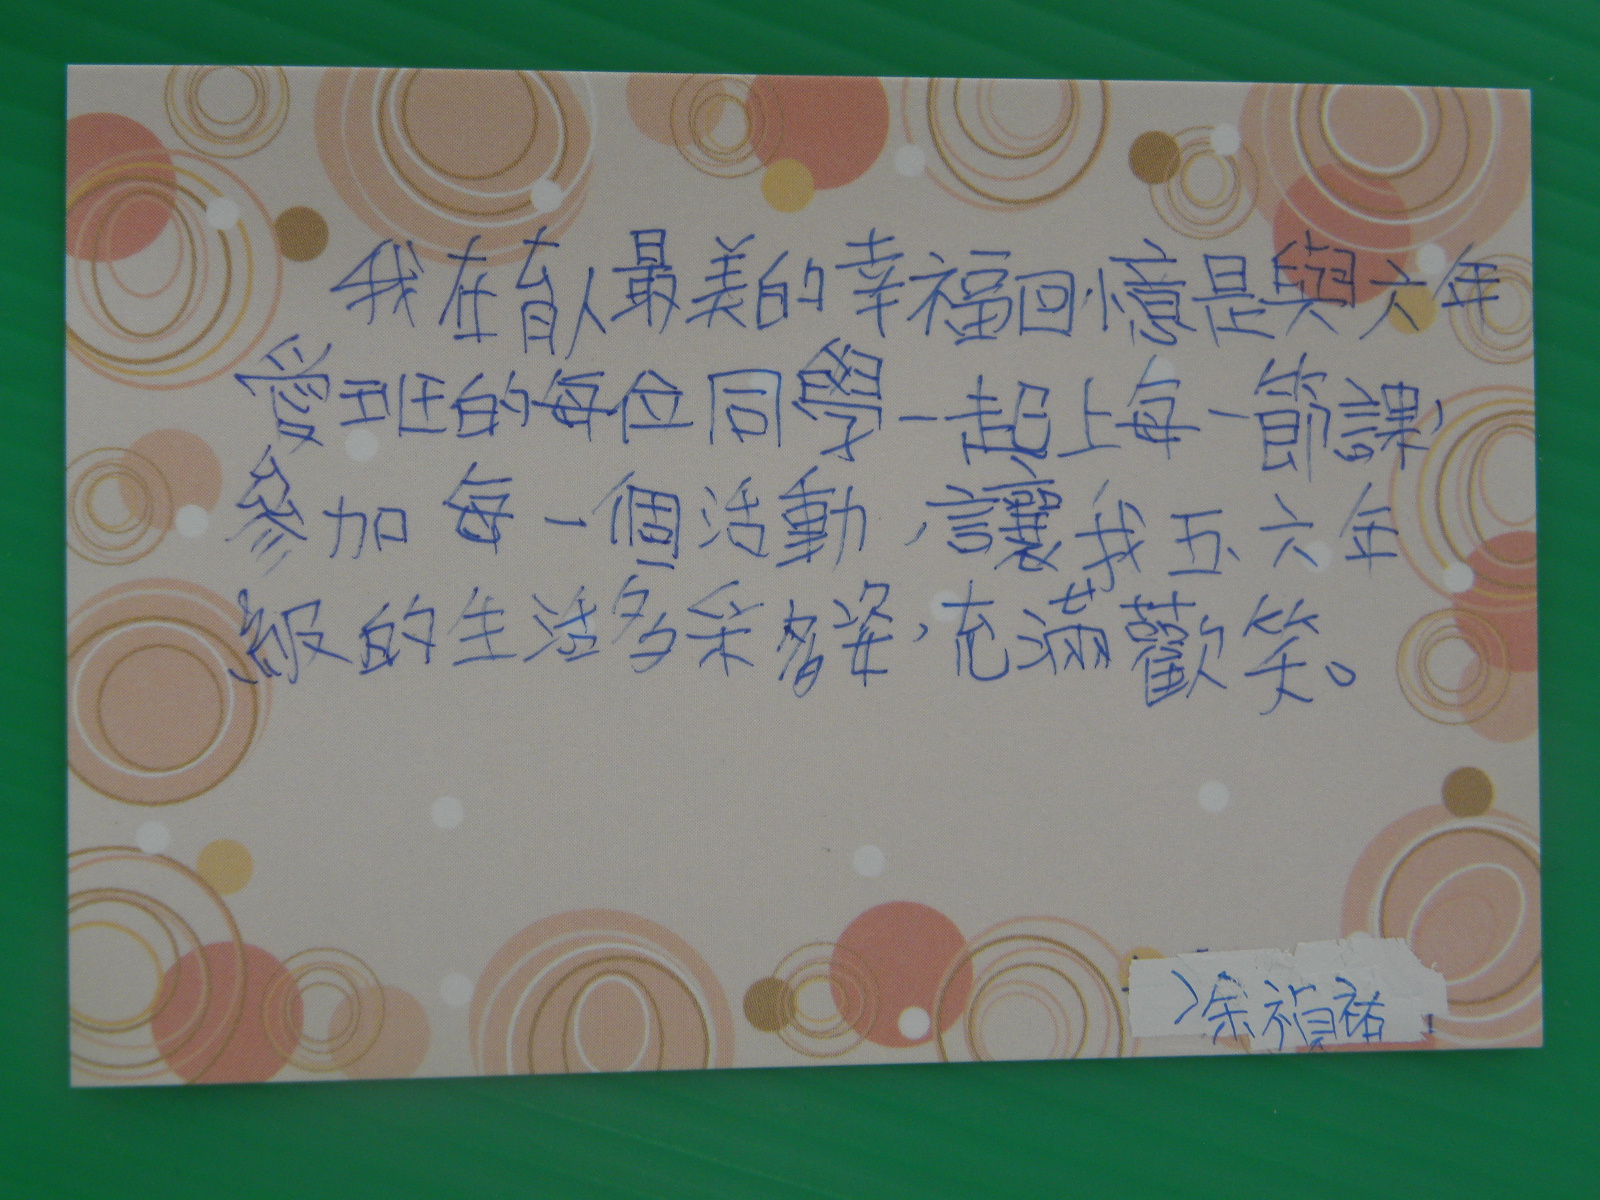 我在育人最美的幸福回憶是與六年
愛班的每位同學一起上每一節課,
參加每一個活動,讓我五、六年
級的生活多采多姿,充滿歡笑。
涂禎祐